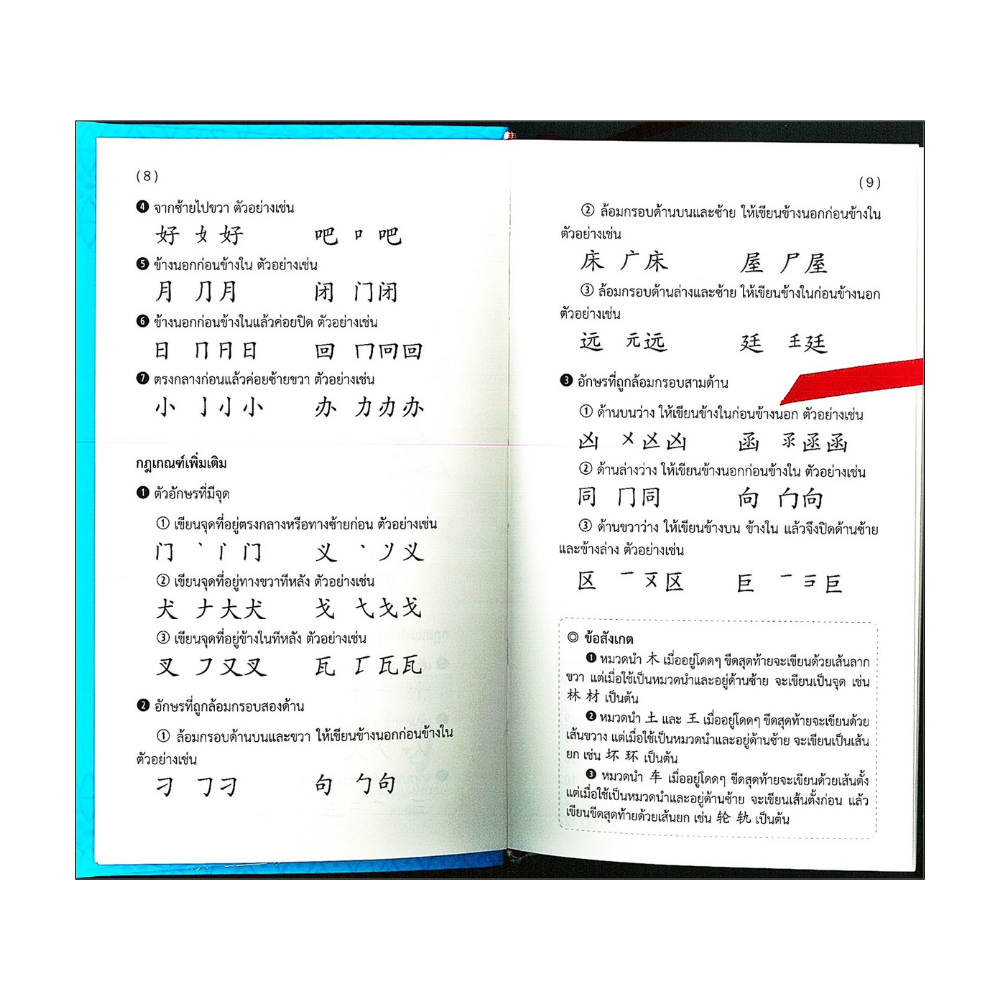 (8)
❹ จากซ้ายไปขวา ตัวอย่างเช่น
好 女 好 吧 口 吧
❺ ข้างนอกก่อนข้างใน ตัวอย่างเช่น
月 ⺆ 月 闭 门 闭
❻ ข้างนอกก่อนข้างในแล้วค่อยปิด ตัวอย่างเช่น
日 冂 日 日 回 冂 回 回
❼ ตรงกลางก่อนแล้วค่อยซ้ายขวา ตัวอย่างเช่น
小 亅 小 小 办 力 办 办
กฎเกณฑ์เพิ่มเติม
❶ ตัวอักษรที่มีจุด
① เขียนจุดที่อยู่ตรงกลางหรือทางซ้ายก่อน ตัวอย่างเช่น
门 丶 门 义 丶 义
② เขียนจุดที่อยู่ทางขวาทีหลัง ตัวอย่างเช่น
犬 ナ 大 犬 戈 弋 戈 戈
③ เขียนจุดที่อยู่ข้างในทีหลัง ตัวอย่างเช่น
叉 フ 又 叉 瓦 瓦 瓦
❷ อักษรที่ถูกล้อมกรอบสองด้าน
① ล้อมกรอบด้านบนและขวา ให้เขียนข้างนอกก่อนข้างใน
ตัวอย่างเช่น
刁 𠃌 刁 句 勹 句
(9)
② ล้อมกรอบด้านบนและซ้าย ให้เขียนข้างนอกก่อนข้างใน
ตัวอย่างเช่น
床 广 床 屋 尸 屋
③ ล้อมกรอบด้านล่างและซ้าย ให้เขียนข้างในก่อนข้างนอก
ตัวอย่างเช่น
远 元 远 廷 王 廷
❸ อักษรที่ถูกล้อมกรอบสามด้าน
① ด้านบนว่าง ให้เขียนข้างในก่อนข้างนอก ตัวอย่างเช่น
凶 㐅 凶 凶 函 函 函
② ด้านล่างว่าง ให้เขียนข้างนอกก่อนข้างใน ตัวอย่างเช่น
同 冂 同 向 向
③ ด้านขวาว่าง ให้เขียนข้างบน ข้างใน แล้วจึงปิดด้านซ้าย
และข้างล่าง ตัวอย่างเช่น
区 一 区 巨 一 巨
◎ ข้อสังเกต
❶ หมวดนำ 木 เมื่ออยู่โดดๆ ขีดสุดท้ายจะเขียนด้วยเส้นลาก
ขวา แต่เมื่อใช้เป็นหมวดนำและอยู่ด้านซ้าย จะเขียนเป็นจุด เช่น
林 材 เป็นต้น
❷ หมวดนำ 土 และ 王 เมื่ออยู่โดดๆ ขีดสุดท้ายจะเขียนด้วย
เส้นขวาง แต่เมื่อใช้เป็นหมวดนำและอยู่ด้านซ้าย จะเขียนเป็นเส้น
ยก เช่น 坏 环 เป็นต้น
❸ หมวดนำ 车 เมื่ออยู่โดดๆ ขีดสุดท้ายจะเขียนด้วยเส้นตั้ง
แต่เมื่อใช้เป็นหมวดนำและอยู่ด้านซ้าย จะเขียนเส้นตั้งก่อน แล้ว
เขียนขีดสุดท้ายด้วยเส้นยก เช่น 轮 轨 เป็นต้น